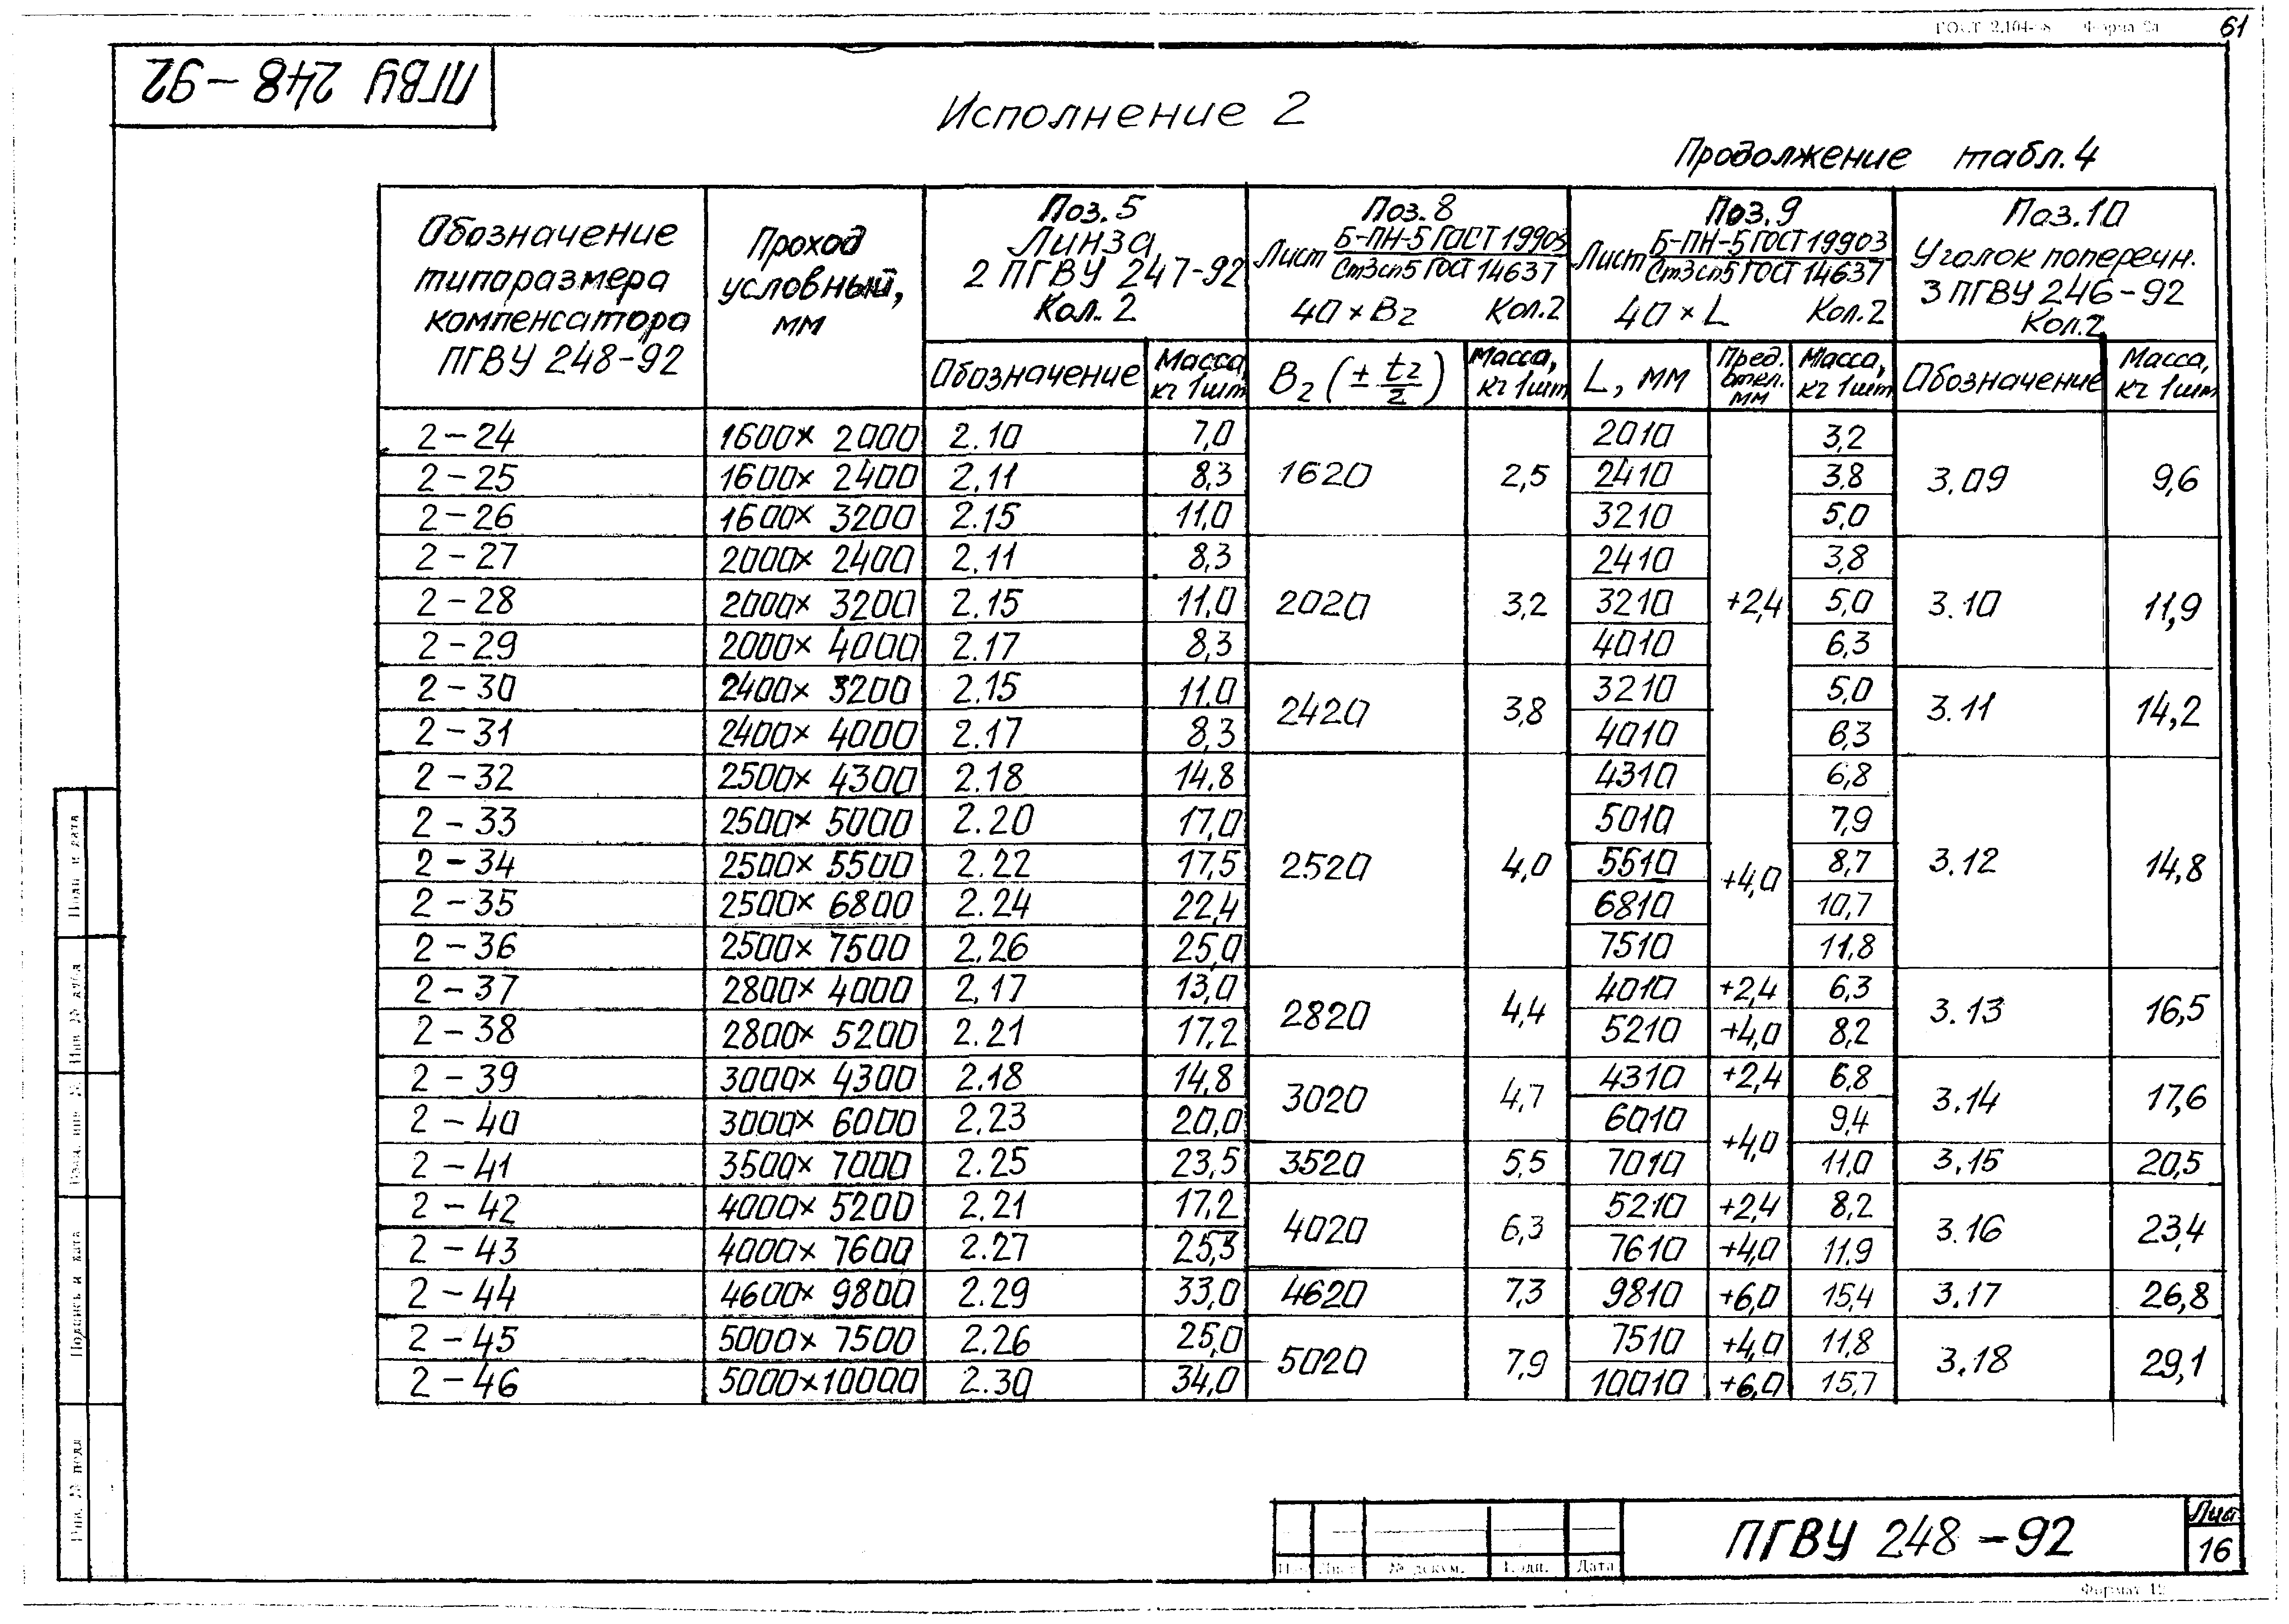 ГОСТ 2.104-68 Форма 2а
61
ПГВУ 248-92
Исполнение 2
Продолжение табл.4
Обозначение типоразмера компенсатора ПГВУ 248-92
Проход условный, мм
Поз.5 Линза 2 ПГВУ 247-92 Кол. 2
Поз.8 Лист Б-ПН-5 ГОСТ 19903 Ст3сп5 ГОСТ 14637 40×B2 Кол.2
Поз.9 Лист Б-ПН-5 ГОСТ 19903 Ст3сп5 ГОСТ 14637 40×L Кол.2
Поз.10 Уголок поперечн. 3 ПГВУ 246-92 Кол.2
Обозначение Масса, кг 1шт B2 (± t2/2) Масса, кг 1шт L, мм Пред. откл. мм Масса, кг 1шт Обозначение Масса, кг 1шт
2-24 1600×2000 2.10 7,0 1620 2,5 2010 +2,4 3,2 3.09 9,6
2-25 1600×2400 2.11 8,3 2410 3,8
2-26 1600×3200 2.15 11,0 3210 5,0
2-27 2000×2400 2.11 8,3 2020 3,2 2410 3,8 3.10 11,9
2-28 2000×3200 2.15 11,0 3210 5,0
2-29 2000×4000 2.17 8,3 4010 6,3
2-30 2400×3200 2.15 11,0 2420 3,8 3210 5,0 3.11 14,2
2-31 2400×4000 2.17 8,3 4010 6,3
2-32 2500×4300 2.18 14,8 2520 4,0 4310 6,8 3.12 14,8
2-33 2500×5000 2.20 17,0 5010 +4,0 7,9
2-34 2500×5500 2.22 17,5 5510 8,7
2-35 2500×6800 2.24 22,4 6810 10,7
2-36 2500×7500 2.26 25,0 7510 11,8
2-37 2800×4000 2.17 13,0 2820 4,4 4010 +2,4 6,3 3.13 16,5
2-38 2800×5200 2.21 17,2 5210 +4,0 8,2
2-39 3000×4300 2.18 14,8 3020 4,7 4310 +2,4 6,8 3.14 17,6
2-40 3000×6000 2.23 20,0 6010 +4,0 9,4
2-41 3500×7000 2.25 23,5 3520 5,5 7010 11,0 3.15 20,5
2-42 4000×5200 2.21 17,2 4020 6,3 5210 +2,4 8,2 3.16 23,4
2-43 4000×7600 2.27 25,3 7610 +4,0 11,9
2-44 4600×9800 2.29 33,0 4620 7,3 9810 +6,0 15,4 3.17 26,8
2-45 5000×7500 2.26 25,0 5020 7,9 7510 +4,0 11,8 3.18 29,1
2-46 5000×10000 2.30 34,0 10010 +6,0 15,7
Подп и дата
Инв № дубл
Взам. инв №
Подпись и дата
№ подл
№ докум. Подп. Дата
ПГВУ 248-92
Лист
16
Формат 12